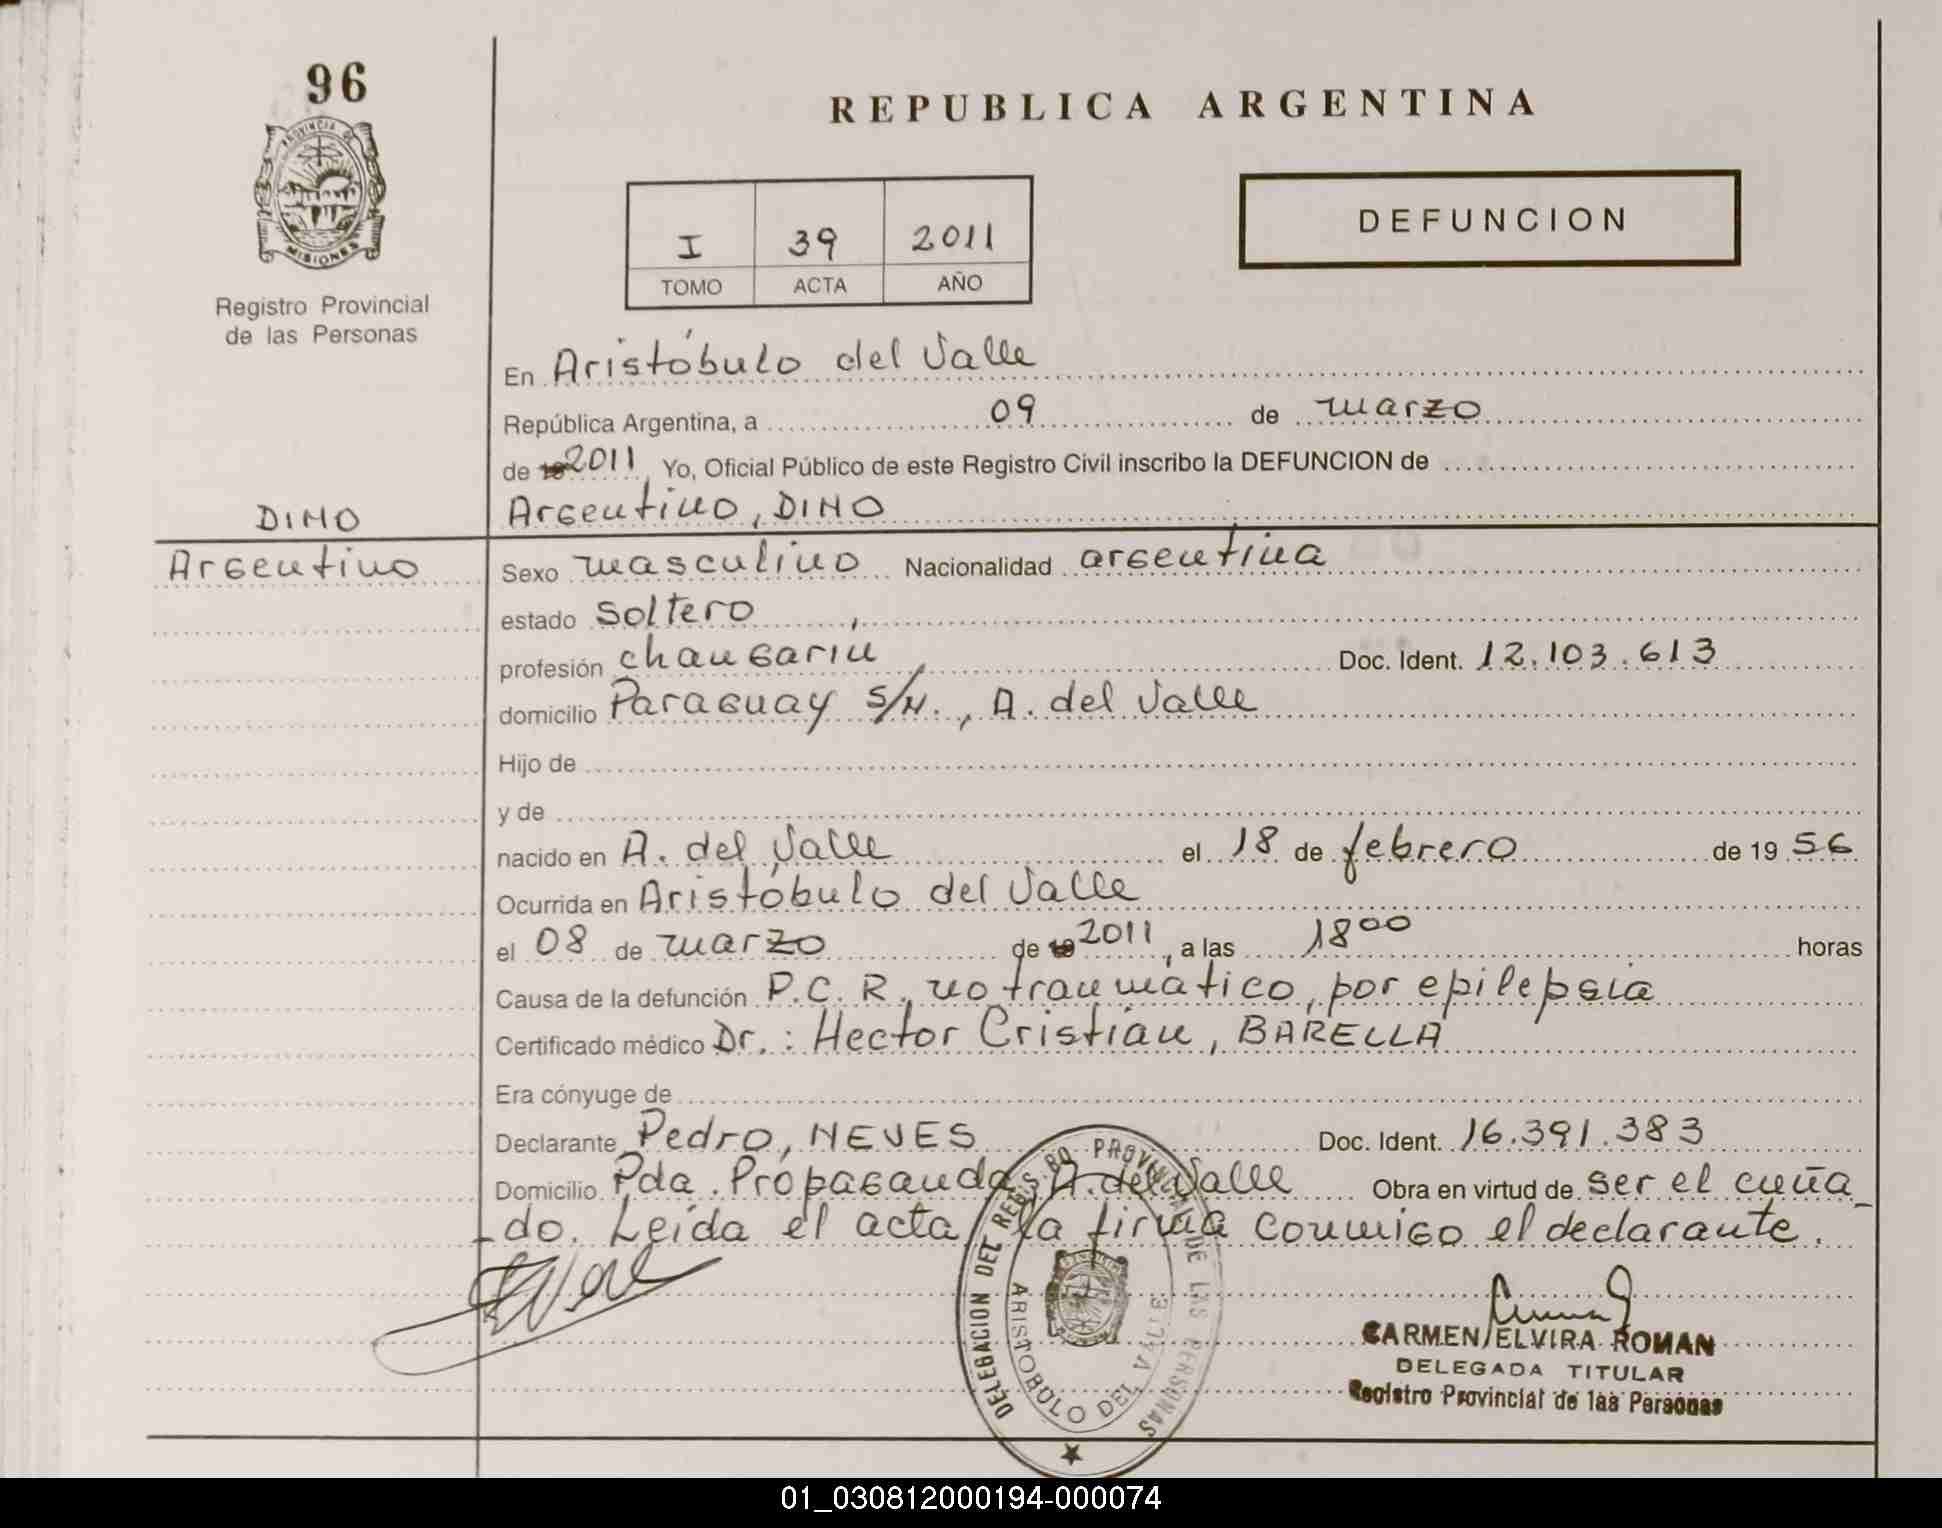 96
PROVINCIA DE
MISIONES
Registro Provincial
de las Personas
REPUBLICA ARGENTINA
I 39 2011
TOMO ACTA AÑO
DEFUNCION
En Aristóbulo del Valle
República Argentina, a 09 de marzo
de 2011, Yo, Oficial Público de este Registro Civil inscribo la DEFUNCION de
DINO
Argentino
Argentino, DINO
Sexo masculino Nacionalidad argentina
estado soltero,
profesión changarin, Doc. Ident. 12.103.613
domicilio Paraguay S/N., A. del Valle
Hijo de
y de
nacido en A. del Valle el 18 de febrero de 19 56
Ocurrida en Aristóbulo del Valle
el 08 de marzo de 2011, a las 18⁰⁰ horas
Causa de la defunción P.C.R., no traumático, por epilepsia
Certificado médico Dr.: Hector Cristián, BARELLA
Era cónyuge de
Declarante Pedro, NEVES Doc. Ident. 16.391.383
Domicilio Pda. Propaganda, A. del Valle Obra en virtud de ser el cuña_
_do. Leída el acta, la firma conmigo el declarante.
DELEGACION DEL REGISTRO PROVINCIAL DE LAS PERSONAS
ARISTOBULO DEL VALLE
CARMEN ELVIRA ROMAN
DELEGADA TITULAR
Registro Provincial de las Personas
01_030812000194-000074